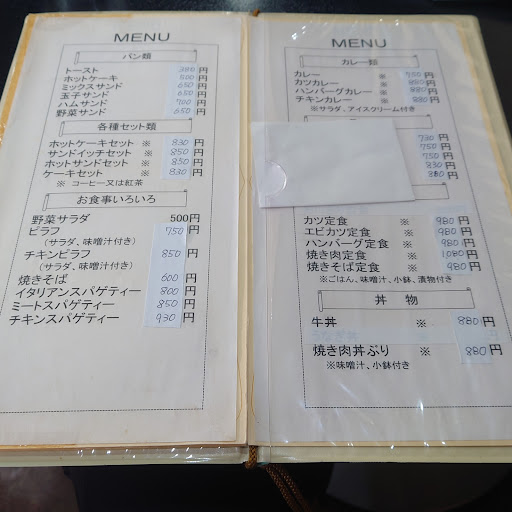 MENU
パン類
トースト 380円
ホットケーキ 500円
ミックスサンド 650円
玉子サンド 650円
ハムサンド 700円
野菜サンド 650円
各種セット類
ホットケーキセット ※ 830円
サンドイッチセット ※ 850円
ホットサンドセット ※ 850円
ケーキセット ※ 830円
※ コーヒー又は紅茶
お食事いろいろ
野菜サラダ 500円
ピラフ 750円
(サラダ、味噌汁付き)
チキンピラフ 850円
(サラダ、味噌汁付き)
焼きそば 600円
イタリアンスパゲティー 800円
ミートスパゲティー 850円
チキンスパゲティー 930円
MENU
カレー類
カレー ※ 750円
カツカレー ※ 880円
ハンバーグカレー ※ 880円
チキンカレー ※ 880円
※サラダ、アイスクリーム付き
730円
750円
750円
830円
880円
カツ定食 ※ 980円
エビカツ定食 ※ 980円
ハンバーグ定食 ※ 980円
焼き肉定食 ※ 1,080円
焼きそば定食 ※ 980円
※ごはん、味噌汁、小鉢、漬物付き
丼 物
牛丼 ※ 880円
焼き肉丼ぶり ※ 880円
※味噌汁、小鉢付き